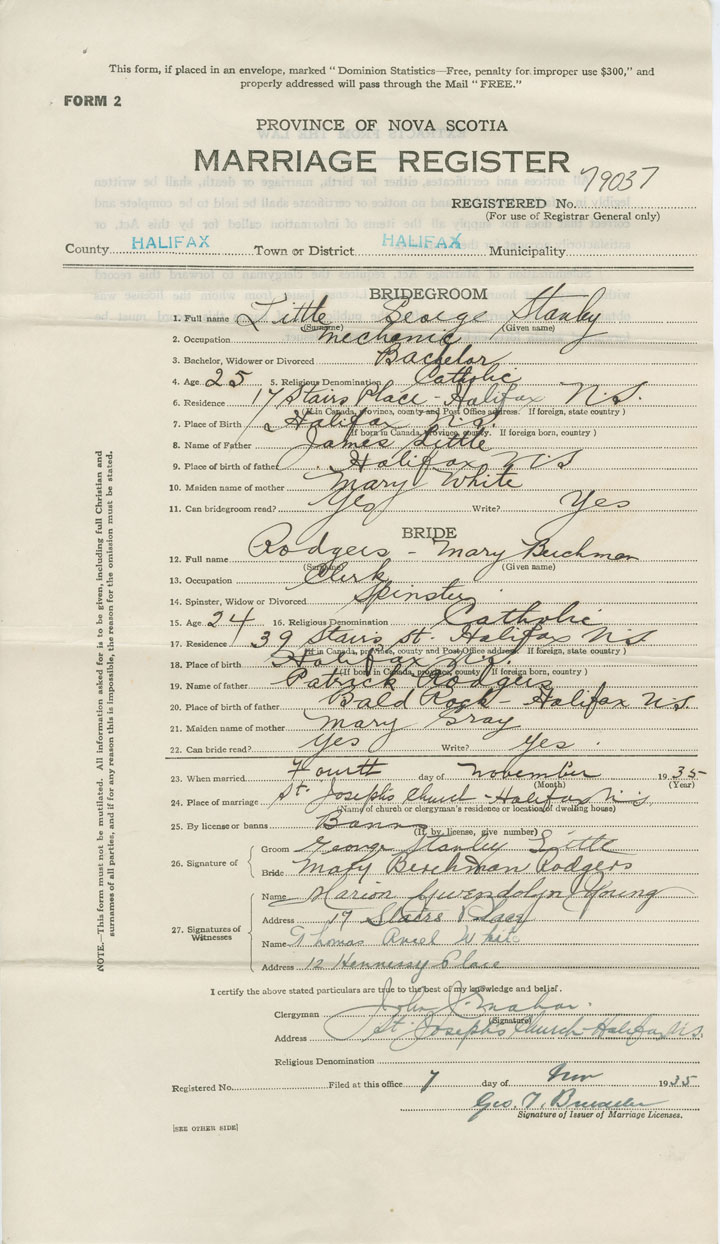 This form, if placed in an envelope, marked "Dominion Statistics—Free, penalty for improper use $300," and
properly addressed will pass through the Mail "FREE."
FORM 2
PROVINCE OF NOVA SCOTIA
MARRIAGE REGISTER
79037
REGISTERED No.
(For use of Registrar General only)
County HALIFAX Town or District HALIFAX Municipality
BRIDEGROOM
1. Full name Little George Stanley
(Surname) (Given name)
2. Occupation mechanic
3. Bachelor, Widower or Divorced Bachelor
4. Age 25 5. Religious Denomination Catholic
6. Residence 17 Stairs Place - Halifax N.S.
(If in Canada, province, county and Post Office address. If foreign, state country)
7. Place of Birth Halifax N.S.
(If born in Canada, province, county. If foreign born, country)
8. Name of Father James Little
9. Place of birth of father Halifax N S
10. Maiden name of mother Mary White
11. Can bridegroom read? Yes Write? Yes
BRIDE
12. Full name Rodgers - Mary Berchman
(Surname) (Given name)
13. Occupation Clerk
14. Spinster, Widow or Divorced Spinster
15. Age 24 16. Religious Denomination Catholic
17. Residence 39 Stairs St. Halifax N.S
(If in Canada, province, county and Post Office address. If foreign, state country)
18. Place of birth Halifax N.S.
(If born in Canada, province, county. If foreign born, country)
19. Name of father Patrick Rodgers
20. Place of birth of father Bald Rock - Halifax N.S.
21. Maiden name of mother Mary Gray
22. Can bride read? Yes Write? Yes.
23. When married Fourth day of November 1935
(Month) (Year)
24. Place of marriage St. Joseph's Church - Halifax N.S.
(Name of church or clergyman's residence or location of dwelling house)
25. By license or banns Banns
(If, by license, give number)
26. Signature of
Groom George Stanley Little
Bride Mary Berchman Rodgers
27. Signatures of Witnesses
Name Marion Gwendolyn Young
Address 17 Stairs Place
Name Thomas White
Address 12 Hennessy Place
I certify the above stated particulars are true to the best of my knowledge and belief.
Clergyman John
(Signature)
Address St. Joseph's Church - Halifax N.S.
Religious Denomination
Registered No. Filed at this office 7 day of Nov 1935
Geo.
Signature of Issuer of Marriage Licenses.
[SEE OTHER SIDE]
NOTE.—This form must not be mutilated. All information asked for is to be given, including full Christian and
surnames of all parties, and if for any reason this is impossible, the reason for the omission must be stated.